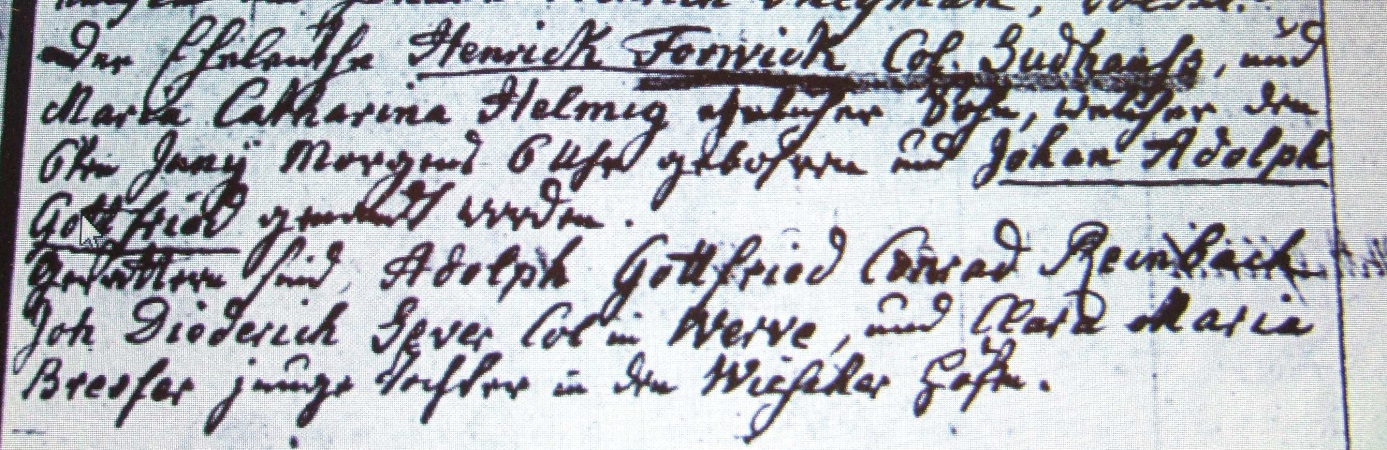 der Eheleuthe Henrich Forwick Col. Sudhauss, und
Maria Catharina Helmig ehelicher Sohn, welcher den
6ten Juny Morgens 6 Uhr gebohren und Johan Adolph
Gottfried genandt worden.
Gevattern sind, Adolph Gottfried Conrad Reinbach
Joh Diederich Sever Col in Werve, und Clara Maria
junge Tochter in den Höfen.